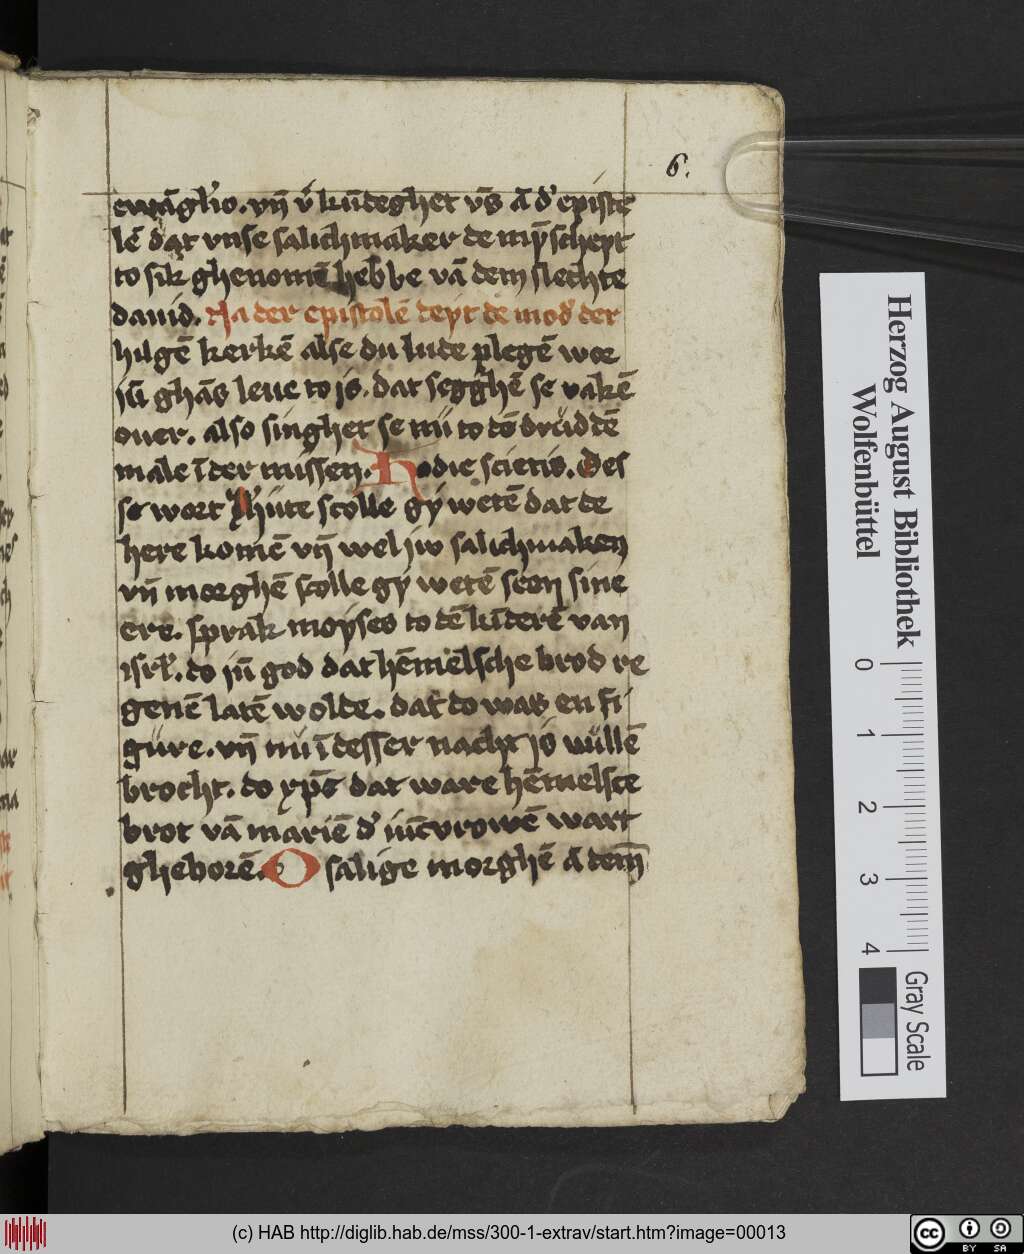 6.
ewāgl'io. vn̄ v' kūdeghet vs̄ ā d' episte
lē dat vnse salichmaker de mȳschept
to sik ghenomē hebbe vā dem slechte
dauid. Na der epistolē teyt de mod' der
hilgē kerkē alse du lude plegē wor
jū ghās leue to is. dat segghē se vakē
ouer. also singhet se nu to dē drüddē
male ī der missen. Hodie scietis. Des
se wort hüte scolle gy wetē dat de
here komē vn̄ wel jw salichmaken
vn̄ morghē scolle gy wetē seen sine
ere. sprak moyses to dē kīderē van
isrl'. do jū god dat hēmelsche brod re
genē latē wolde. dat do was en fi
gure. vn̄ nu ī desser nacht is wüllē
brocht. do xp̄s dat ware hēmelsce
brot vā mariē d' iūcvrowē wart
gheborē. O salige morghē ā dem
Herzog August Bibliothek
Wolfenbüttel
0 1 2 3 4
Gray Scale
(c) HAB http://diglib.hab.de/mss/300-1-extrav/start.htm?image=00013
cc BY SA